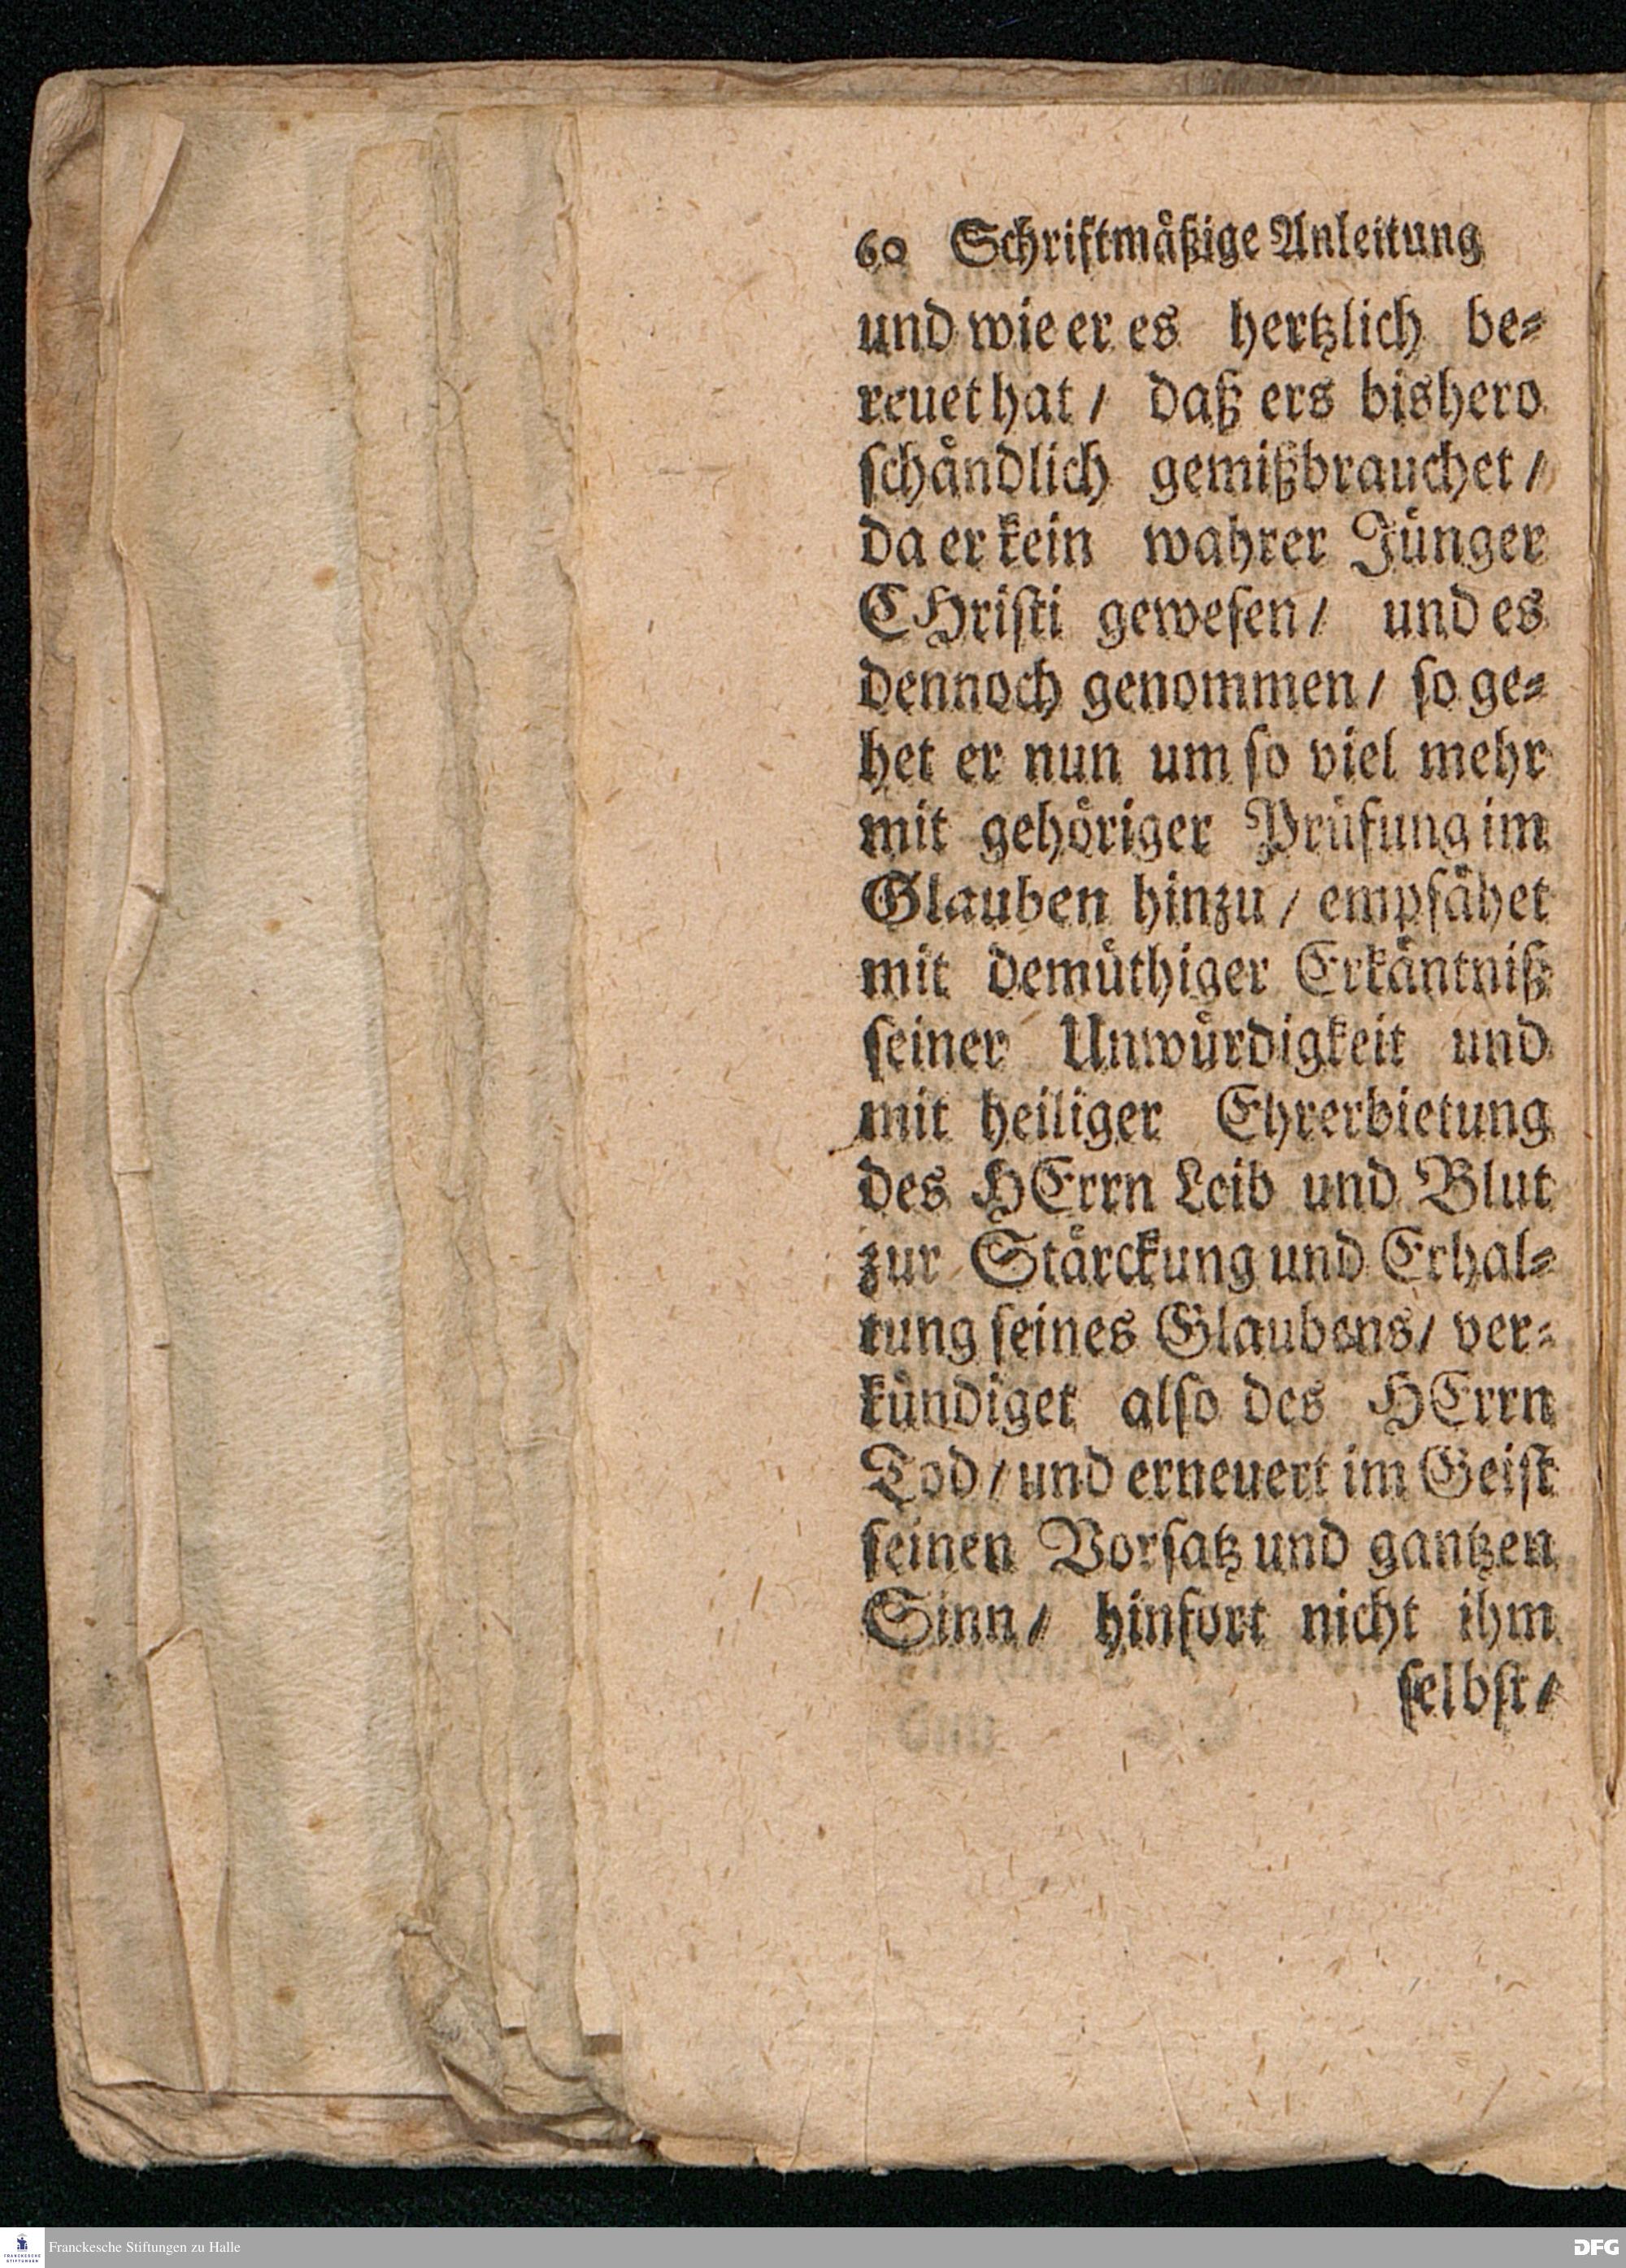 60 Schrifftmäßige Anleitung
und wie er es hertzlich be-
reuet hat / daß ers bishero
schändlich gemißbrauchet /
da er kein wahrer Jünger
CHristi gewesen / und es
dennoch genommen / so ge-
het er nun um so viel mehr
mit gehöriger Prüfung im
Glauben hinzu / empfähet
mit demüthiger Erkäntniß
seiner Unwürdigkeit und
mit heiliger Ehrerbietung
des HErrn Leib und Blut
zur Stärckung und Erhal-
tung seines Glaubens / ver-
kündiget also des HErrn
Tod / und erneuert im Geist
seinen Vorsatz und gantzen
Sinn / hinfort nicht ihm
selbst /
FRANCKESCHE STIFTUNGEN
Franckesche Stiftungen zu Halle
DFG